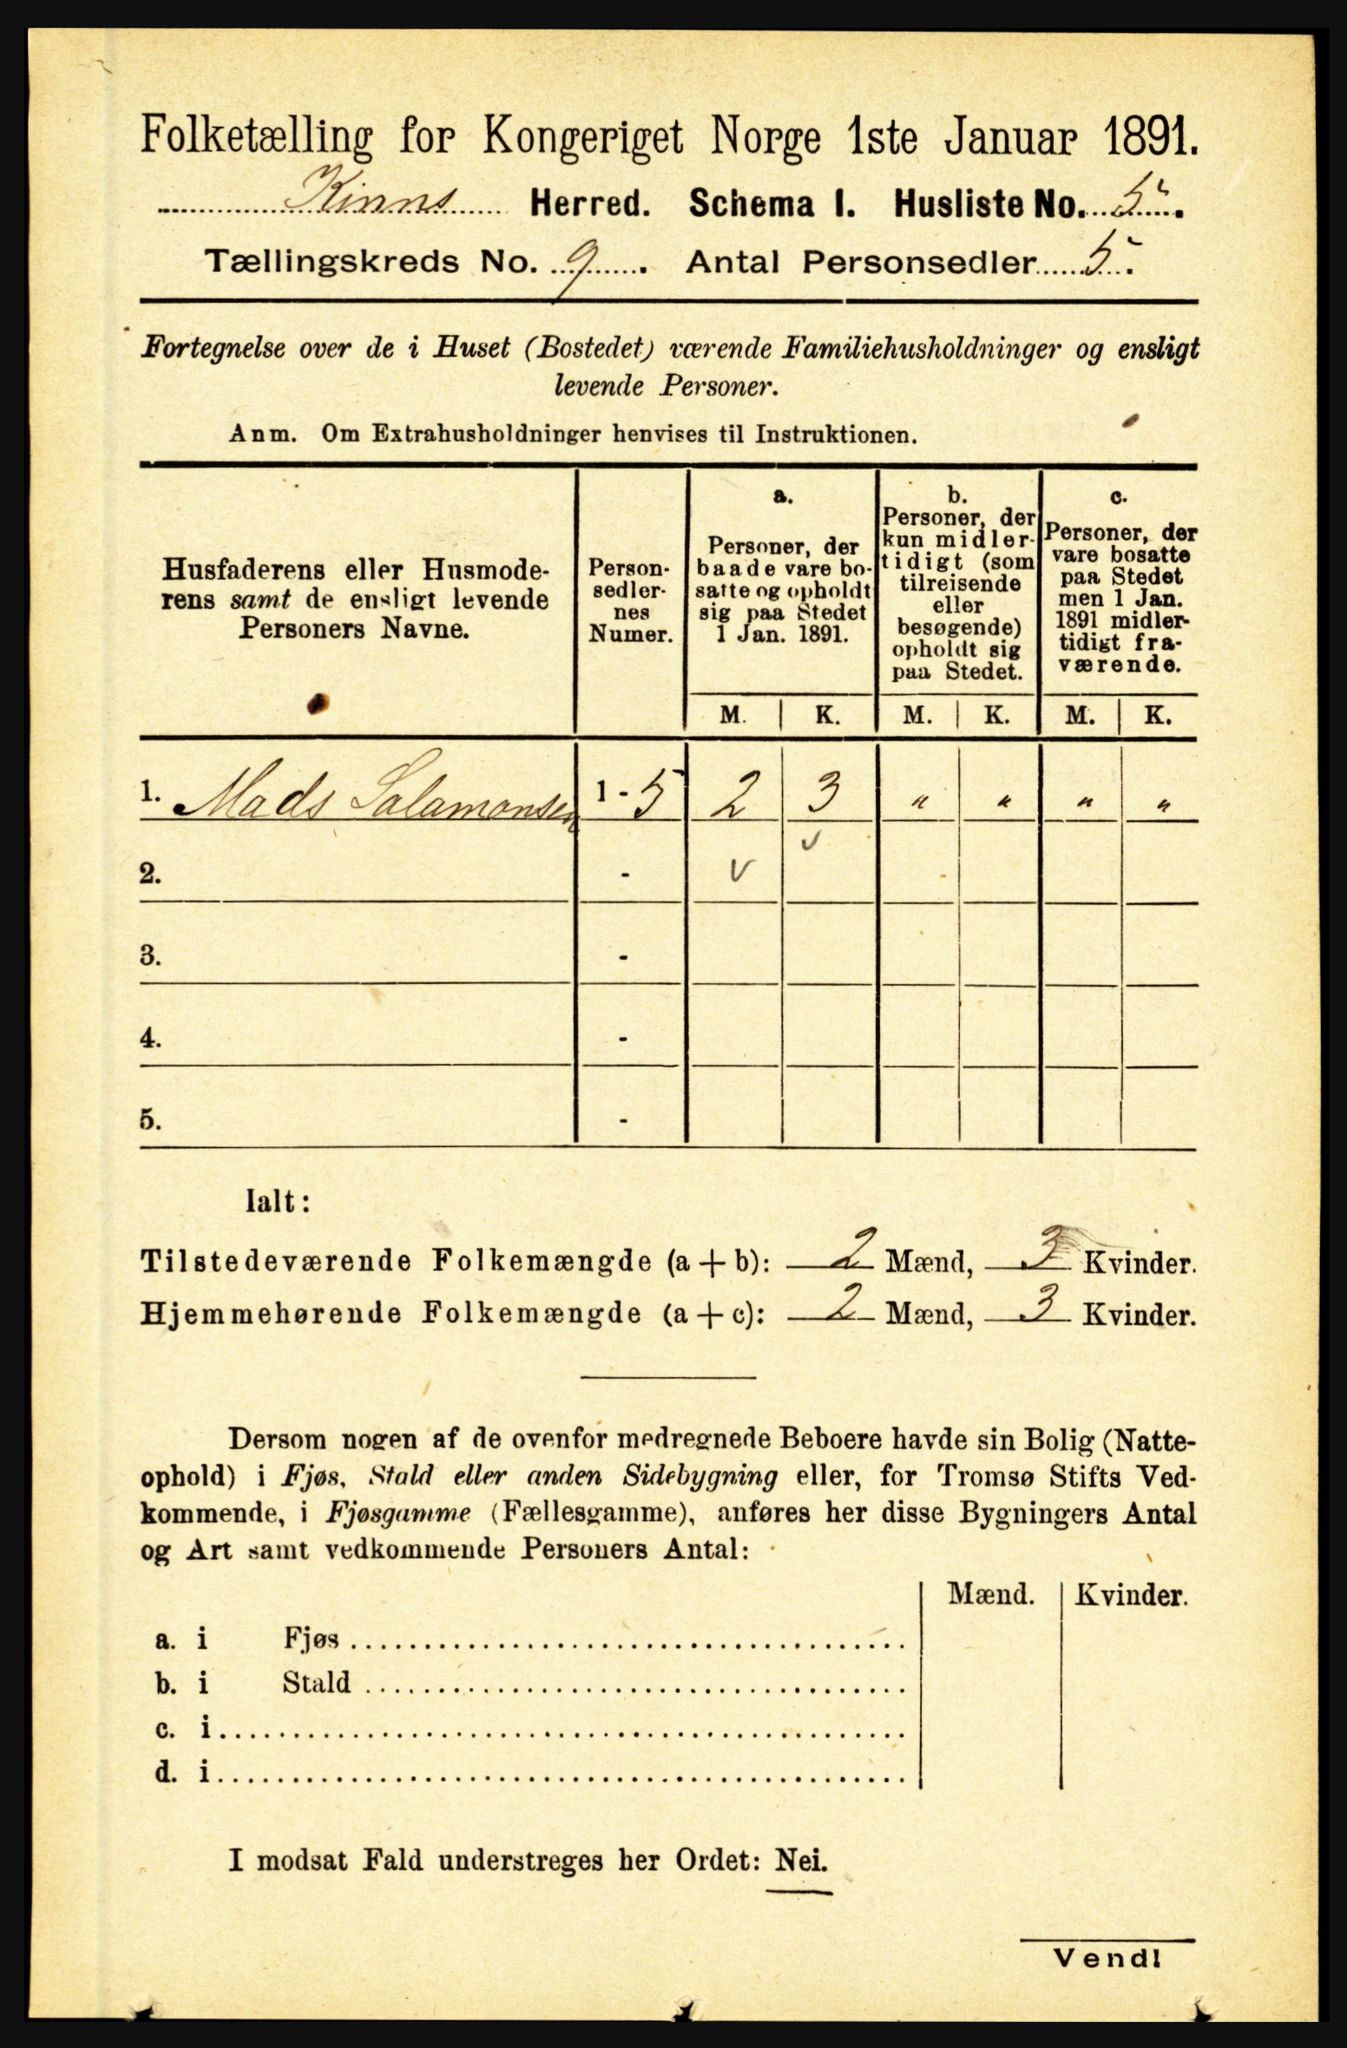 Folketælling for Kongeriget Norge 1ste Januar 1891.
Kinns Herred. Schema I. Husliste No. 5.
Tællingskreds No. 9. Antal Personsedler 5.
Fortegnelse over de i Huset (Bostedet) værende Familiehusholdninger og ensligt
levende Personer.
Anm. Om Extrahusholdninger henvises til Instruktionen.
Husfaderens eller Husmode-
rens samt de ensligt levende
Personers Navne.
Person-
sedler-
nes
Numer.
a.
Personer, der
baade vare bo-
satte og opholdt
sig paa Stedet
1 Jan. 1891.
b.
Personer, der
kun midler-
tidigt (som
tilreisende
eller
besøgende)
opholdt sig
paa Stedet.
c.
Personer, der
vare bosatte
paa Stedet
men 1 Jan.
1891 midler-
tidigt fra-
værende.
M. K. M. K. M. K.
1. Mads Salamonsen 1 - 5 2 3 " " " "
2. - v v
3. -
4. -
5. -
Ialt:
Tilstedeværende Folkemængde (a + b): 2 Mænd, 3 Kvinder.
Hjemmehørende Folkemængde (a + c): 2 Mænd, 3 Kvinder.
Dersom nogen af de ovenfor medregnede Beboere havde sin Bolig (Natte-
ophold) i Fjøs, Stald eller anden Sidebygning eller, for Tromsø Stifts Ved-
kommende, i Fjøsgamme (Fællesgamme), anføres her disse Bygningers Antal
og Art samt vedkommende Personers Antal:
Mænd. Kvinder.
a. i Fjøs
b. i Stald
c. i
d. i
I modsat Fald understreges her Ordet: Nei.
Vend!